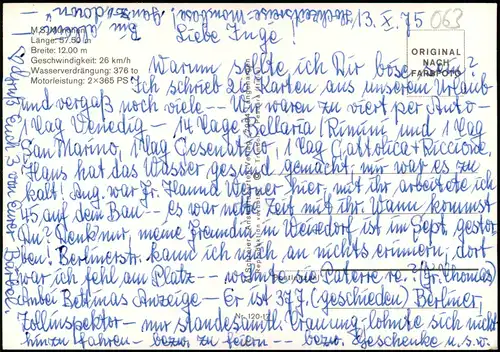 13. X. 75
063
Liebe Inge!
M.S. München
Länge: 57.50 m
Breite: 12.00 m
Geschwindigkeit: 26 km/h
Wasserverdrängung: 376 to
Motorleistung: 2×365 PS
ORIGINAL
NACH
FARBFOTO
Warum sollte ich Dir böse
Ich schrieb 24 Karten aus unserem Urlaub
und vergaß noch viele — Wir waren zu viert per Auto –
1 Tag Venedig — 14 Tage Bellaria/Rimini und 1 Tag
San Marino, 1 Tag Cesenatico, 1 Tag Cattolica + Riccione.
Hans hat das Wasser gesund gemacht, mir war es zu
kalt! Aug. war Fr. Hanna Werner hier, mit ihr arbeitete ich
45 auf dem Bau — es war nette Zeit mit ihr. Wann kommst
Du? Denk nur meine Freundin in Weixdorf ist im Sept. gestor
ben. Berlinerstr. kann ich mich an nichts erinnern, dort
war ich fehl am Platz — wohnte sie Paterre re.? (Fr. Thomas)
Anbei Bettinas Anzeige — Er ist 37 J. (geschieden) Berliner,
Zollinspektor — nur standesamtl. Trauung, lohnte sich nicht
hinzufahren — bezw. zu feiern — bezw. Geschenke u.s.w.
Nr. 120-t